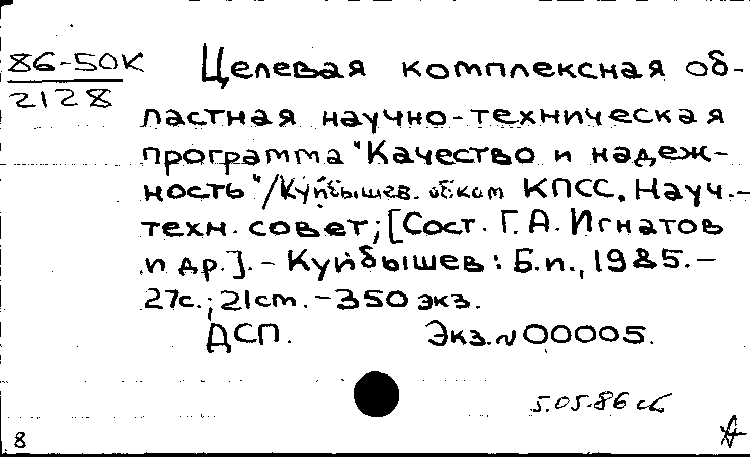 86-50К
2128
Целевая комплексная об-
ластная научно-техническая
программа "Качество и надеж-
ность"/Куйбышев. обком КПСС, Науч.-
техн. совет; [Сост. Г.А. Игнатов
и др.]. - Куйбышев: Б.и., 1985. -
27с.; 21см. - 350 экз.
ДСП. Экз.№ 00005.
5.05.86
8